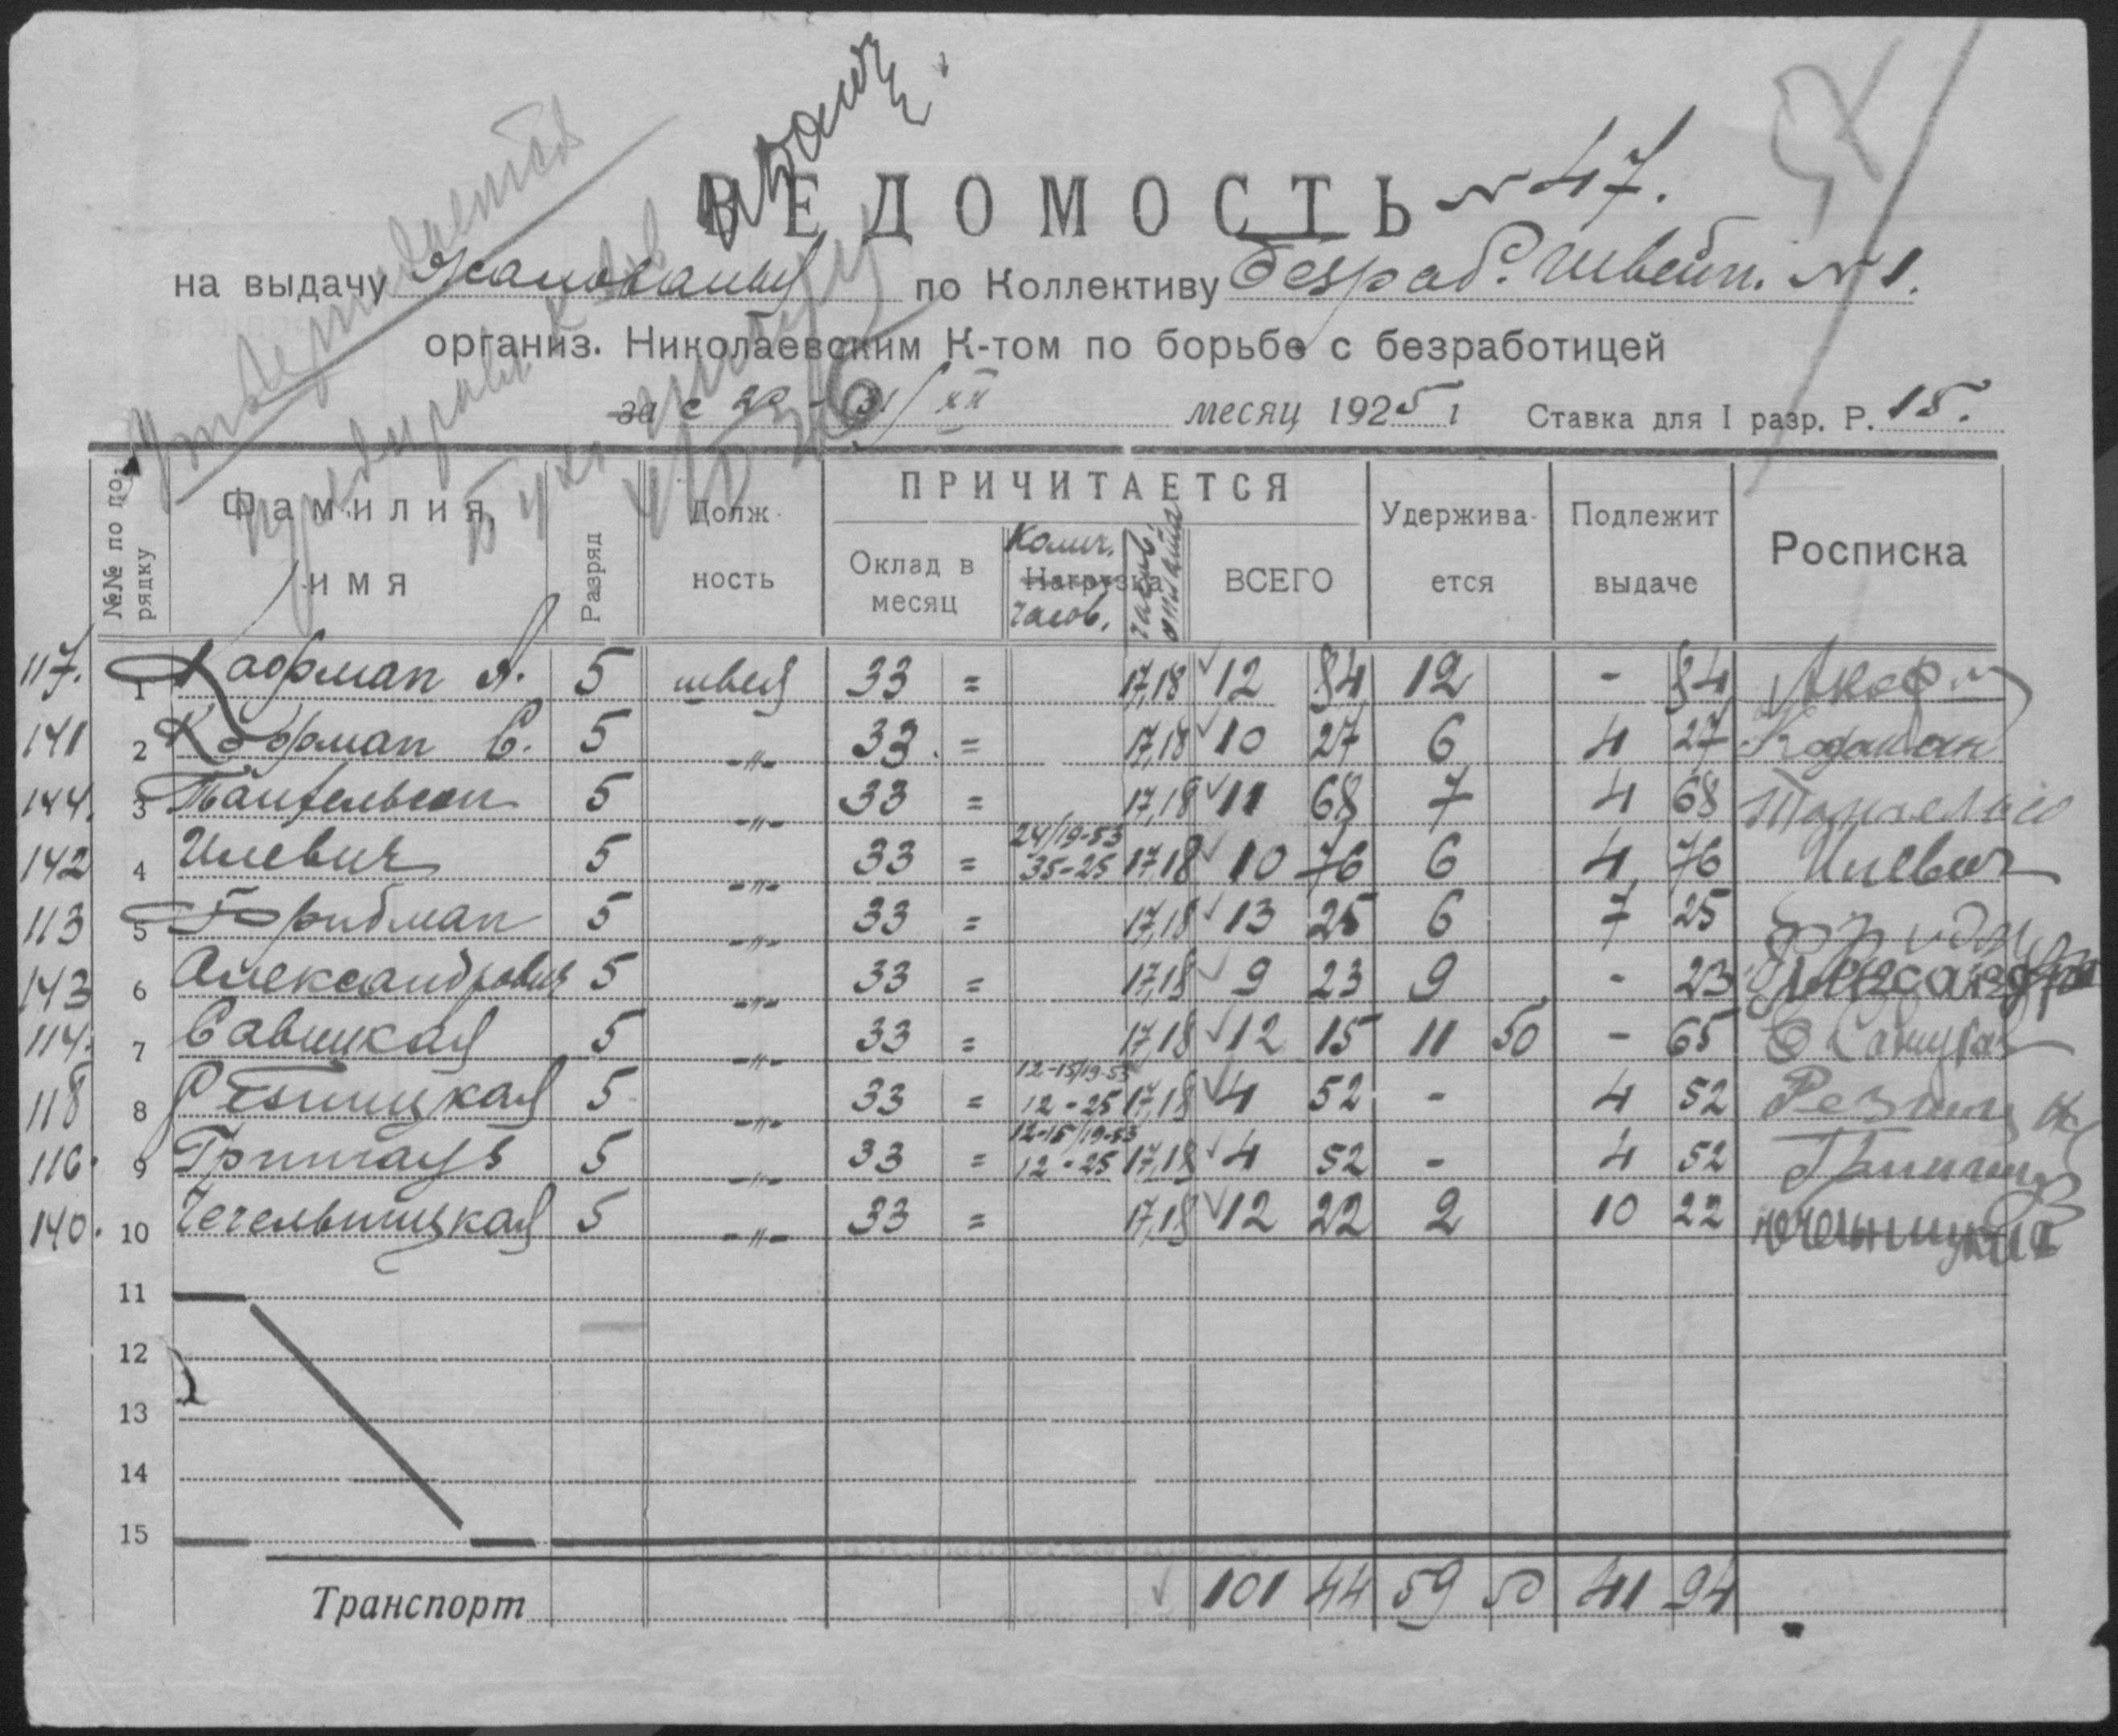 ВЕДОМОСТЬ № 47.
на выдачу Жалованья по Коллективу безраб. Швейн. № 1.
организ. Николаевским К-том по борьбе с безработицей
за с 20 - 31/XII месяц 1925 г Ставка для I разр. Р. 15.
№№ по порядку Фамилия, имя Разряд Должность ПРИЧИТАЕТСЯ Оклад в месяц Колич. Нагрузка часов. ВСЕГО Удерживается Подлежит выдаче Росписка
117. 1 Кофман А. 5 швея 33 = 17,18 12 84 12 - 84
141 2 Кофман С. 5 -"- 33 = 17,18 10 27 6 4 27 Кофман
144. 3 Танфельсон 5 -"- 33 = 17,18 11 68 7 4 68
142 4 Илевич 5 -"- 33 = 24/19-53 35-25 17,18 10 76 6 4 76 Илевич
113 5 Фридман 5 -"- 33 = 17,18 13 25 6 7 25
143 6 Александрович 5 -"- 33 = 17,18 9 23 9 - 23
114. 7 Савицкая 5 -"- 33 = 17,18 12 15 11 50 - 65
118 8 Резницкая 5 -"- 33 = 12-15/19-53 12-25 17,18 4 52 - 4 52
116. 9 Грингауз 5 -"- 33 = 12-15/19-53 12-25 17,18 4 52 - 4 52
140. 10 Чечельницкая 5 -"- 33 = 17,18 12 22 2 10 22 Чечельницкая
11
12
13
14
15
Транспорт 101 44 59 50 41 94